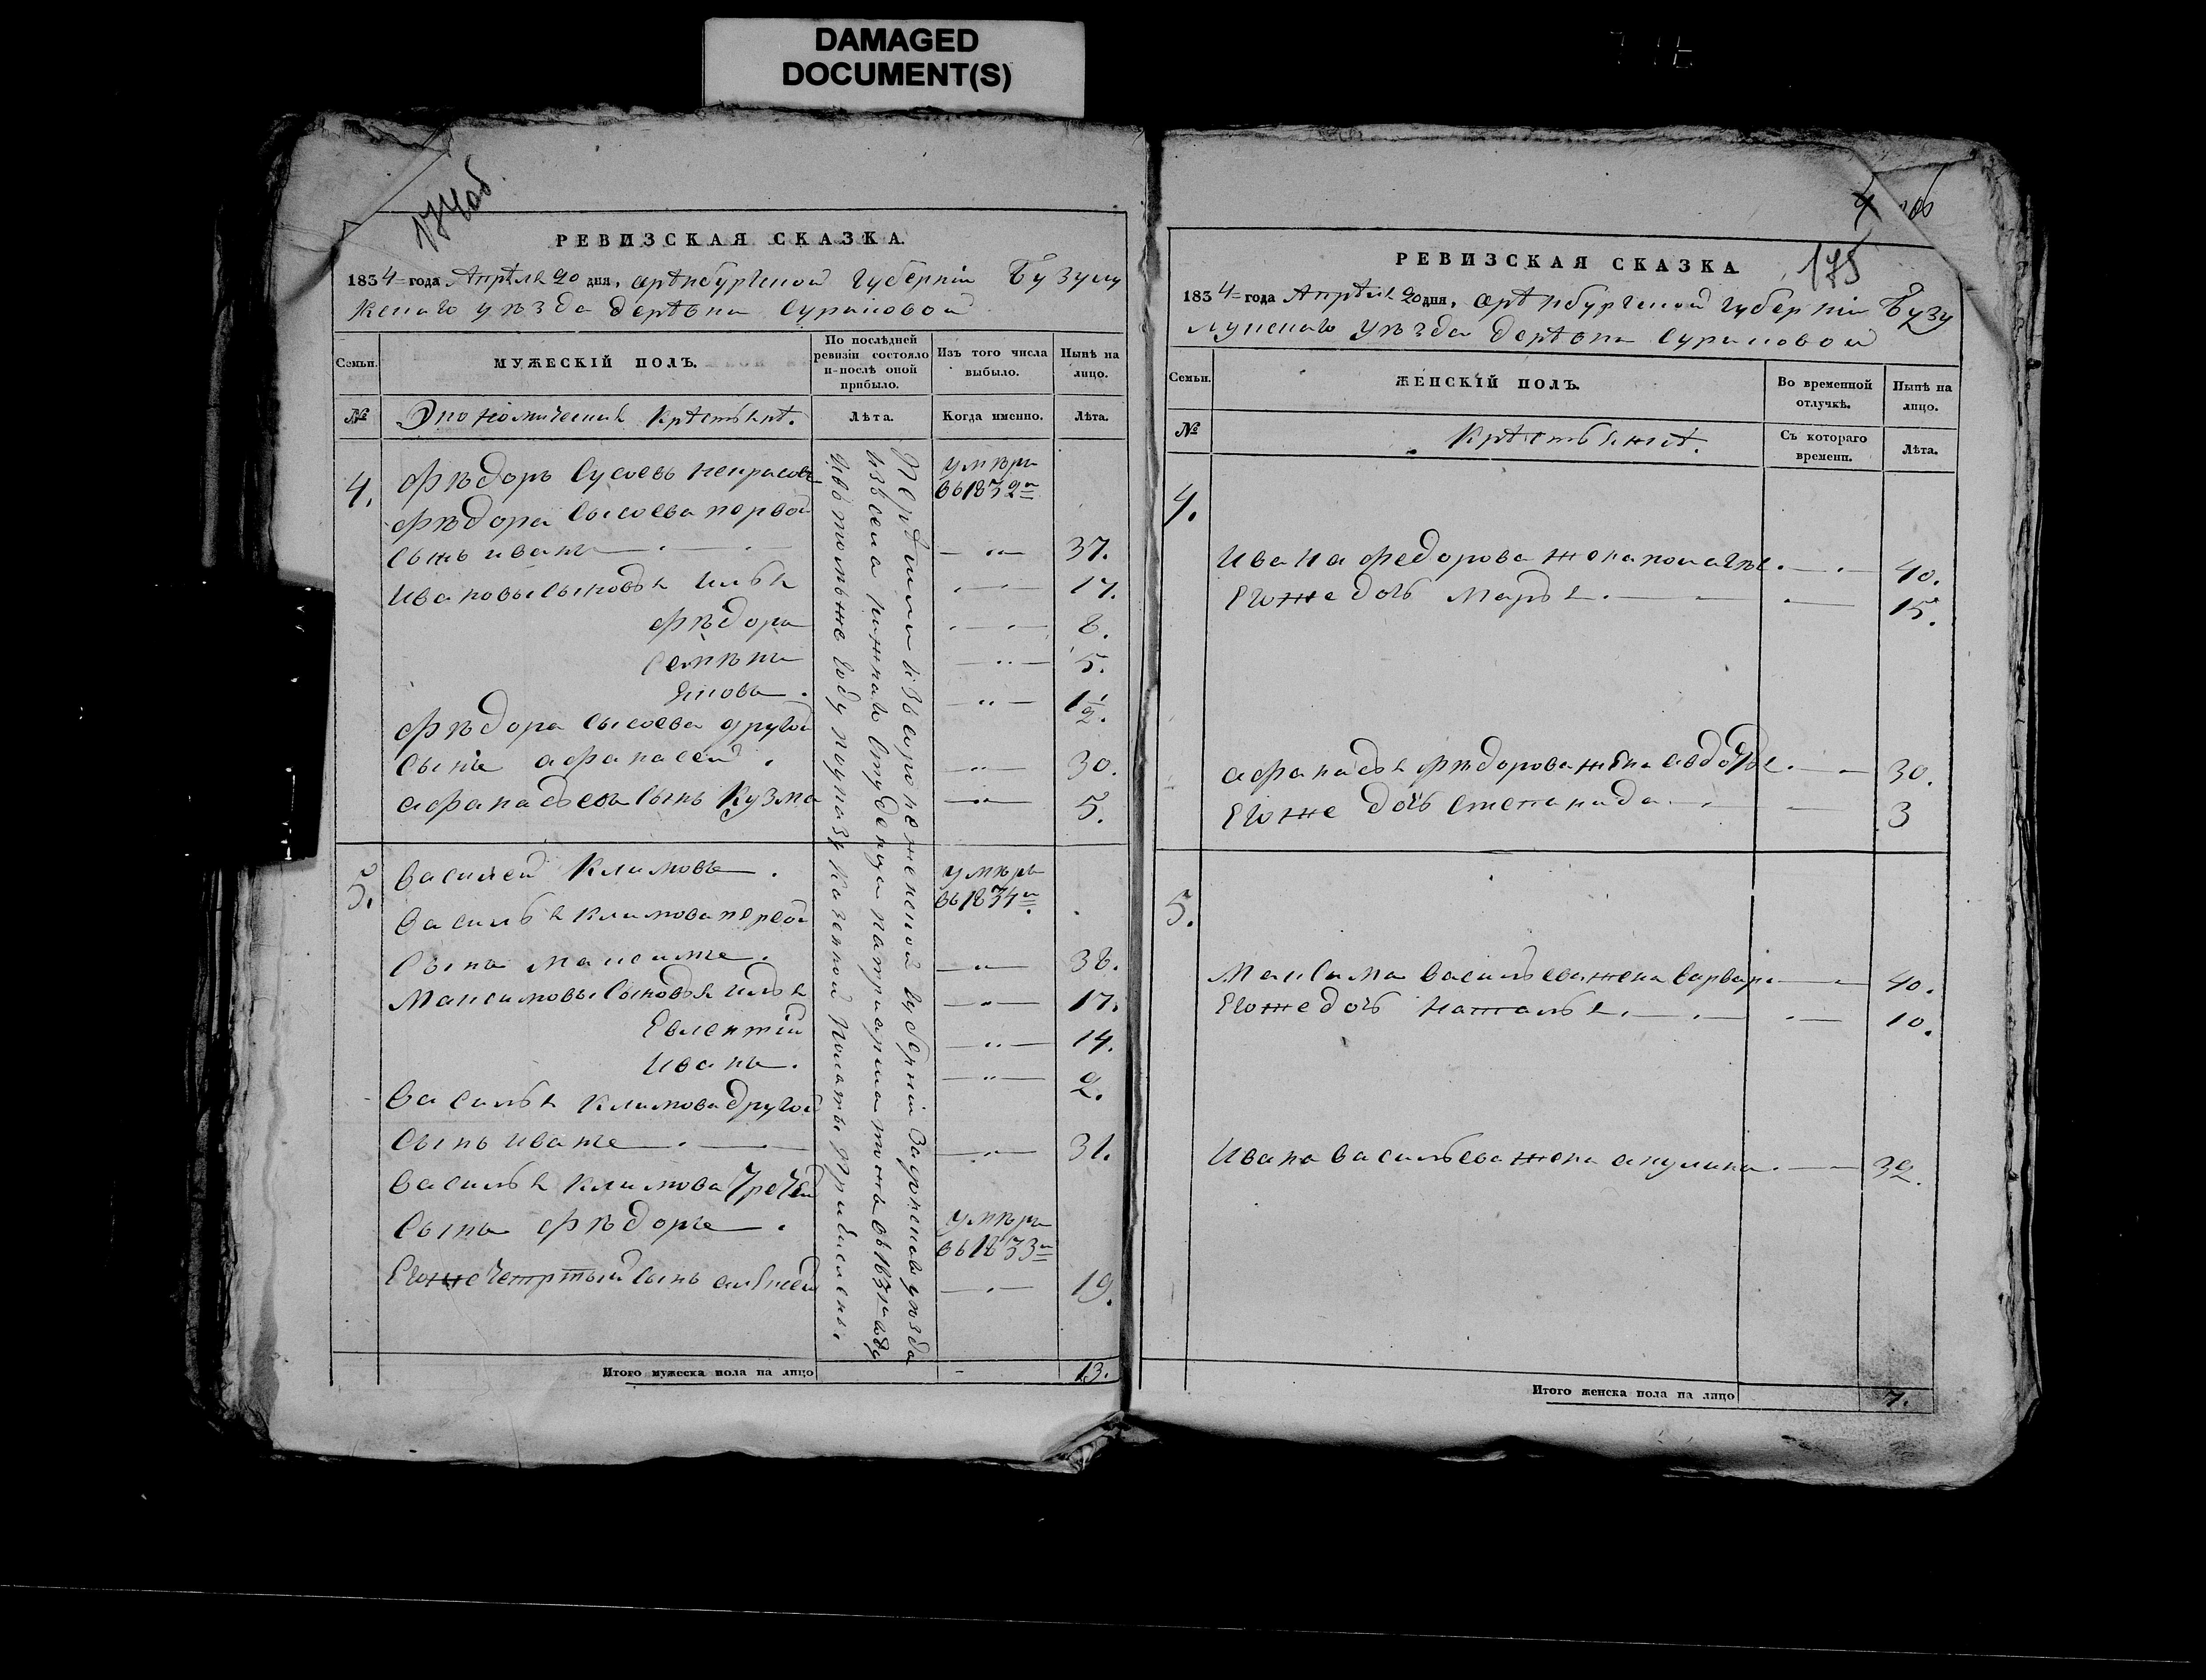 DAMAGED
DOCUMENT(S)
174об.
РЕВИЗСКАЯ СКАЗКА.
1834 года Апреля 20 дня. Оренбургской губерніи Бузулу
кскаго уезда деревни Суриковой
Семьи.
МУЖЕСКІЙ ПОЛЪ.
По послѣдней
ревизіи состояло
и послѣ оной
прибыло.
Изъ того числа
выбыло.
Нынѣ на
лицо.
№
Экономические крестьяне.
Лѣта.
Когда именно.
Лѣта.
4.
Федоръ Сысоевъ Некрасовъ
умеръ
въ 1832
Федора Сысоева первой
сынъ иванъ
37.
Ивановы сыновья Илья
17.
Федоръ
8.
Семенъ
5.
Яковъ.
1 1/2.
Федора Сысоева другой
сынъ афанасей.
30.
афанасьевъ сынъ Кузма
5.
5.
Василей Климовъ.
умеръ
въ 1834.
Василья Климова первой
сынъ Максимъ.
38.
Максимовы сыновья Илья
17.
Евлентій
14.
Иванъ.
2.
Василья Климова другой
сынъ иванъ
31.
Василья Климова третей
сынъ Федоръ.
умеръ
въ 1833
Егоже четвртый сынъ алексей
19.
губерніи
уезда
изъ села
въ 1831 году
году по указу казенной палаты причислены.
Итого мужеска пола на лицо
13.
4 об
175
РЕВИЗСКАЯ СКАЗКА
1834 года Апреля 20 дня. Оренбургской губерніи Бузу
лукскаго уезда деревни Суриковой
Семьи.
ЖЕНСКІЙ ПОЛЪ.
Во временной
отлучкѣ.
Нынѣ на
лицо.
№
Крестьяне.
Съ котораго
времени.
Лѣта.
4.
Ивана федорова жена
40.
Егоже дочь Марья.
15.
афанасья федорова жена авдотья.
30.
Егоже дочь степанида.
3
5.
Максима васильева жена варвара
40.
Егоже дочь наталья.
10.
Ивана васильева жена акулина.
32.
Итого женска пола на лицо
7.